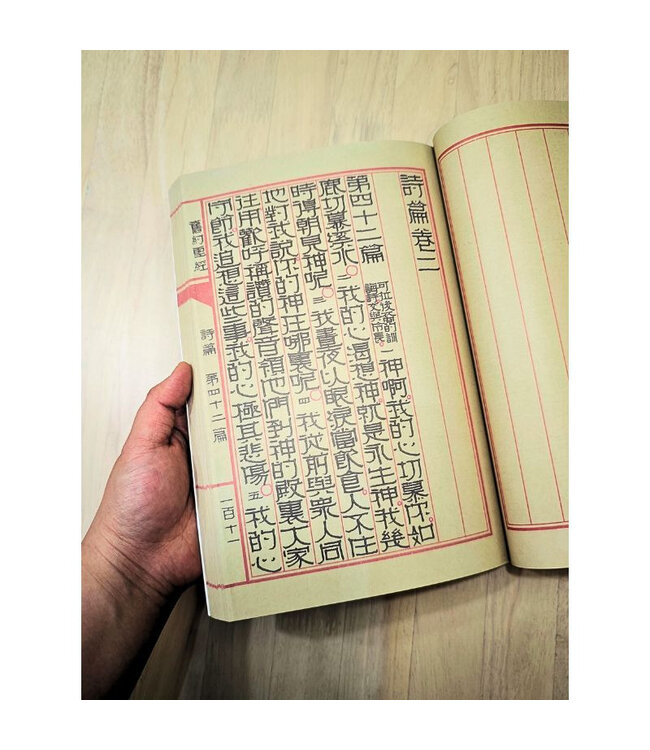 詩篇卷二
第四十二篇
可拉後裔的訓
誨詩交與伶長
一神啊。我的心切慕你。如
鹿切慕溪水。二我的心渴想神。就是永生神。我幾
時得朝見神呢。三我晝夜以眼淚當飲食。人不住
地對我說。你的神在哪裏呢。四我從前與眾人同
往。用歡呼稱讚的聲音。領他們到神的殿裏。大家
守節。我追想這些事。我的心極其悲傷。五我的心
舊約聖經
詩篇 第四十二篇
一百十一